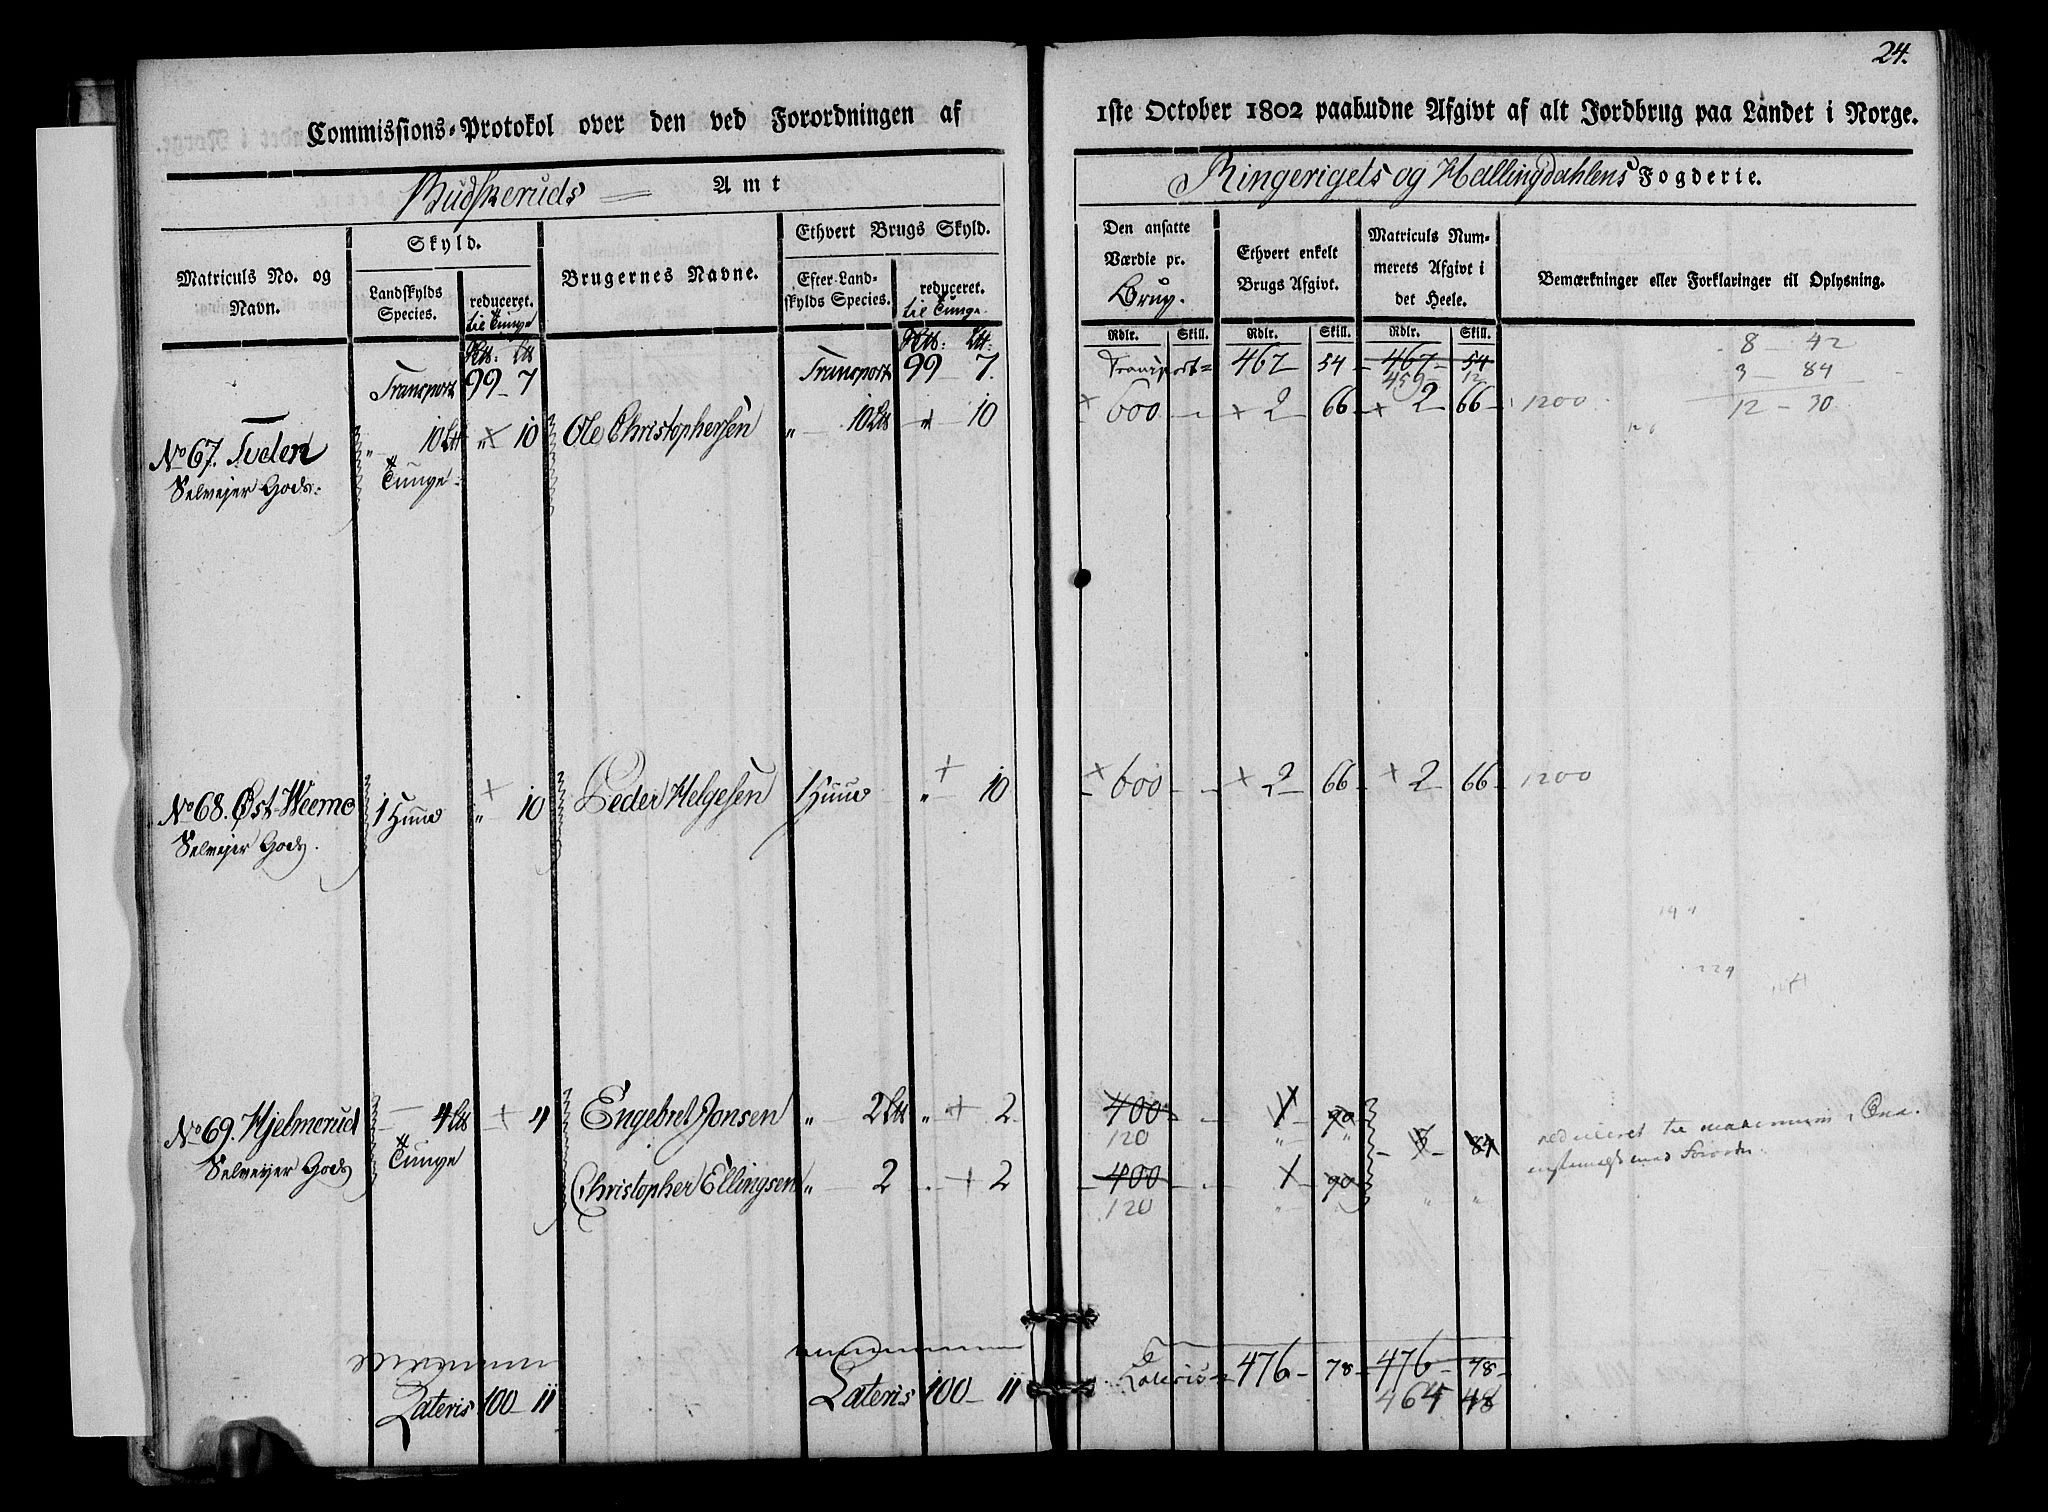 24.
Commissions-Protokol over den ved Forordningen af 1ste October 1802 paabudne Afgivt af alt Jordbrug paa Landet i Norge.
Budskeruds Amt
Ringerigets og Hallingdahlens Fogderie.
Matriculs No. og Navn.
Skyld.
Landskylds Species.
reduceret. til Tunge
Brugernes Navne.
Ethvert Brugs Skyld.
Efter Landskylds Species.
reduceret. til Tunge
Den ansatte Værdie pr. Brug.
Ethvert enkelt Brugs Afgivt.
Matriculs Nummerets Afgivt i det Heele.
Bemærkninger eller Forklaringer til Oplysning.
Rdlr. Skill. Rdlr. Skill. Rdlr. Skill.
Transport 99 - 7 Transport 99 - 7. Transport 467 54 467 54
459 12
8 - 42
3 - 84
12 - 30
No 67. Tveden 10 Ltt „ 10 Ole Christophersen „ 10 Ltt „ 10 600 2 66 2 66 1200
Selvejer Gods. Tunge
No 68. Øst-Weeme 1 Huud „ 10 Peder Helgesen 1 Huud „ 10 600 2 66 2 66 1200
Selvejer Gods.
No 69. Hjelmerud 4 Ltt 4 Engebret Jonsen „ 2 Ltt „ 2 400 1 90 3 84
Selvejer Gods Tunge 120 „ „
Christopher Ellingsen „ 2 2 400 1 90 „ „
120 „ „
reduceret til
Lateris 100 - 11 Lateris 100 - 11 Lateris 476 - 78 476 - 78
464 48